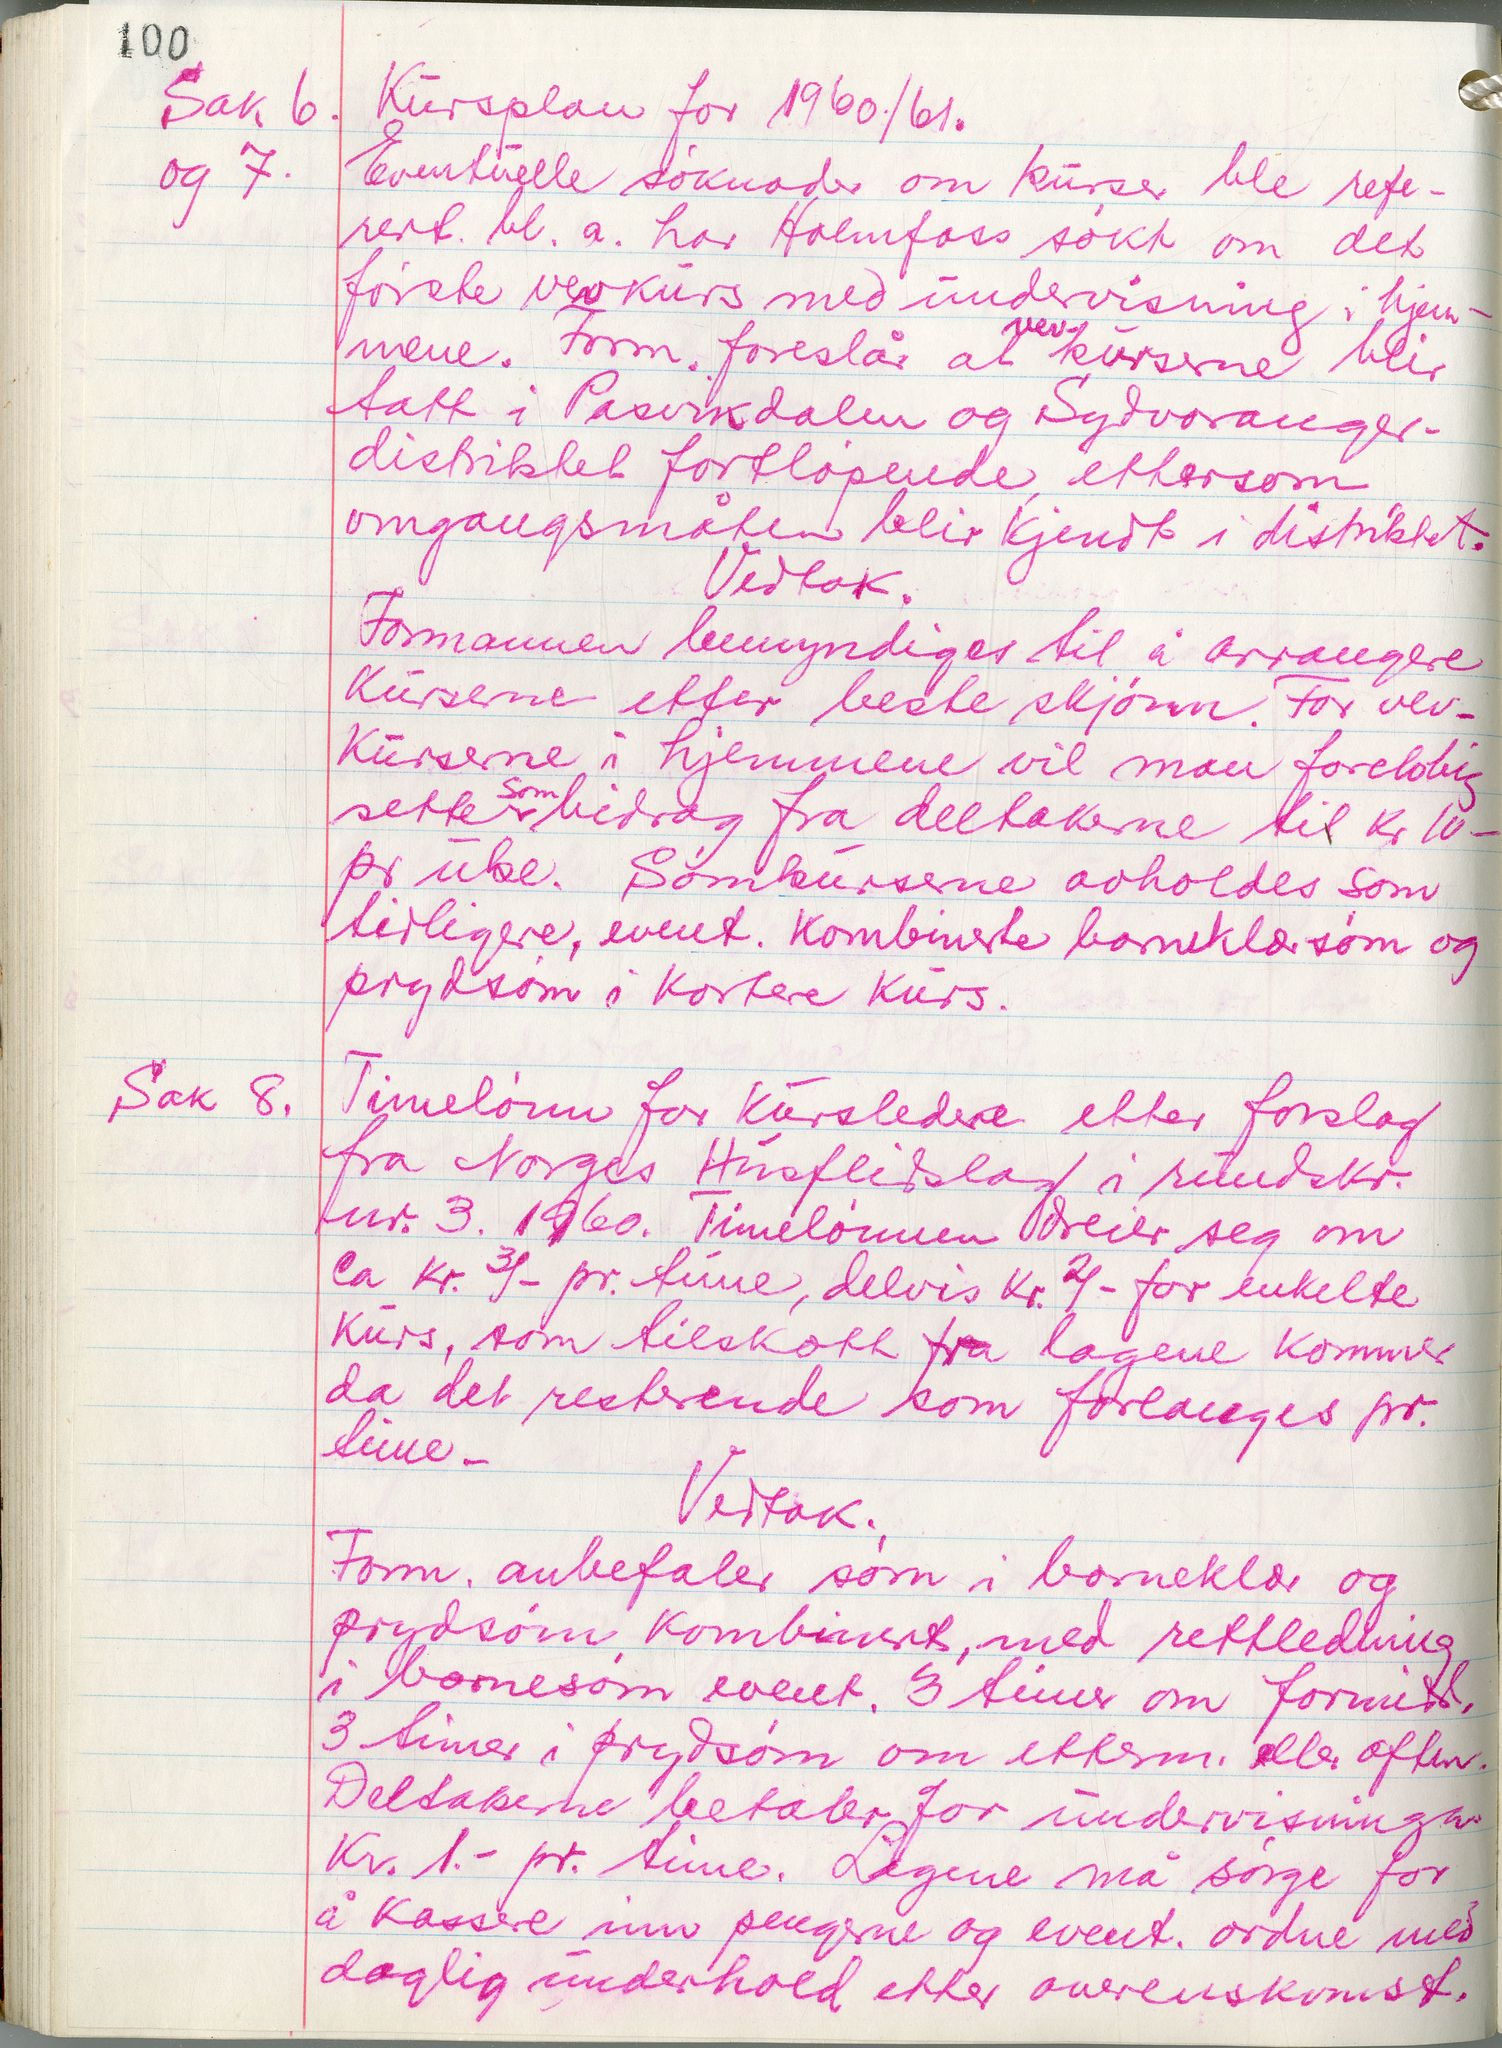 100
Sak 6. Kursplan for 1960/61.
og 7. Eventuelle søknader om kurser ble refe-
rert. bl. a. har Holmfoss søkt om det
første vevkurs med undervisning i hjem-
mene. Form. foreslår at vev-kurserne blir
tatt i Pasvikdalen og Sydvaranger-
distriktet fortløpende, ettersom
omgangsmåten blir kjendt i distriktet.
Vedtak.
Formannen bemyndiges til å arrangere
kurserne etter beste skjønn. For vev-
kurserne i hjemmene vil man foreløbig
sette som bidrag fra deltakerne til kr 10-
pr uke. Sømkurserne avholdes som
tidligere, event. kombinerte barneklærsøm og
prydsøm i kortere kurs.
Sak 8. Timelønn for kursledere etter forslag
fra Norges Husflidslag i rundskr.
nr. 3. 1960. Timelønnen dreier seg om
ca kr. 3/- pr. time, delvis kr. 2/- for enkelte
kurs, som tilskott fra lagene kommer
da det resterende som forlanges pr.
time-
Vedtak.
Form. anbefaler søm i barneklær og
prydsøm kombinert, med rettledning
i barnesøm event. 3 timer om formidd.
3 timer i prydsøm om etterm. eller aften.
Deltakerne betaler for undervisningen
Kr. 1.- pr. time. Lagene må sørge for
å kassere inn pengerne og event. ordne med
daglig underhold etter overenskomst.